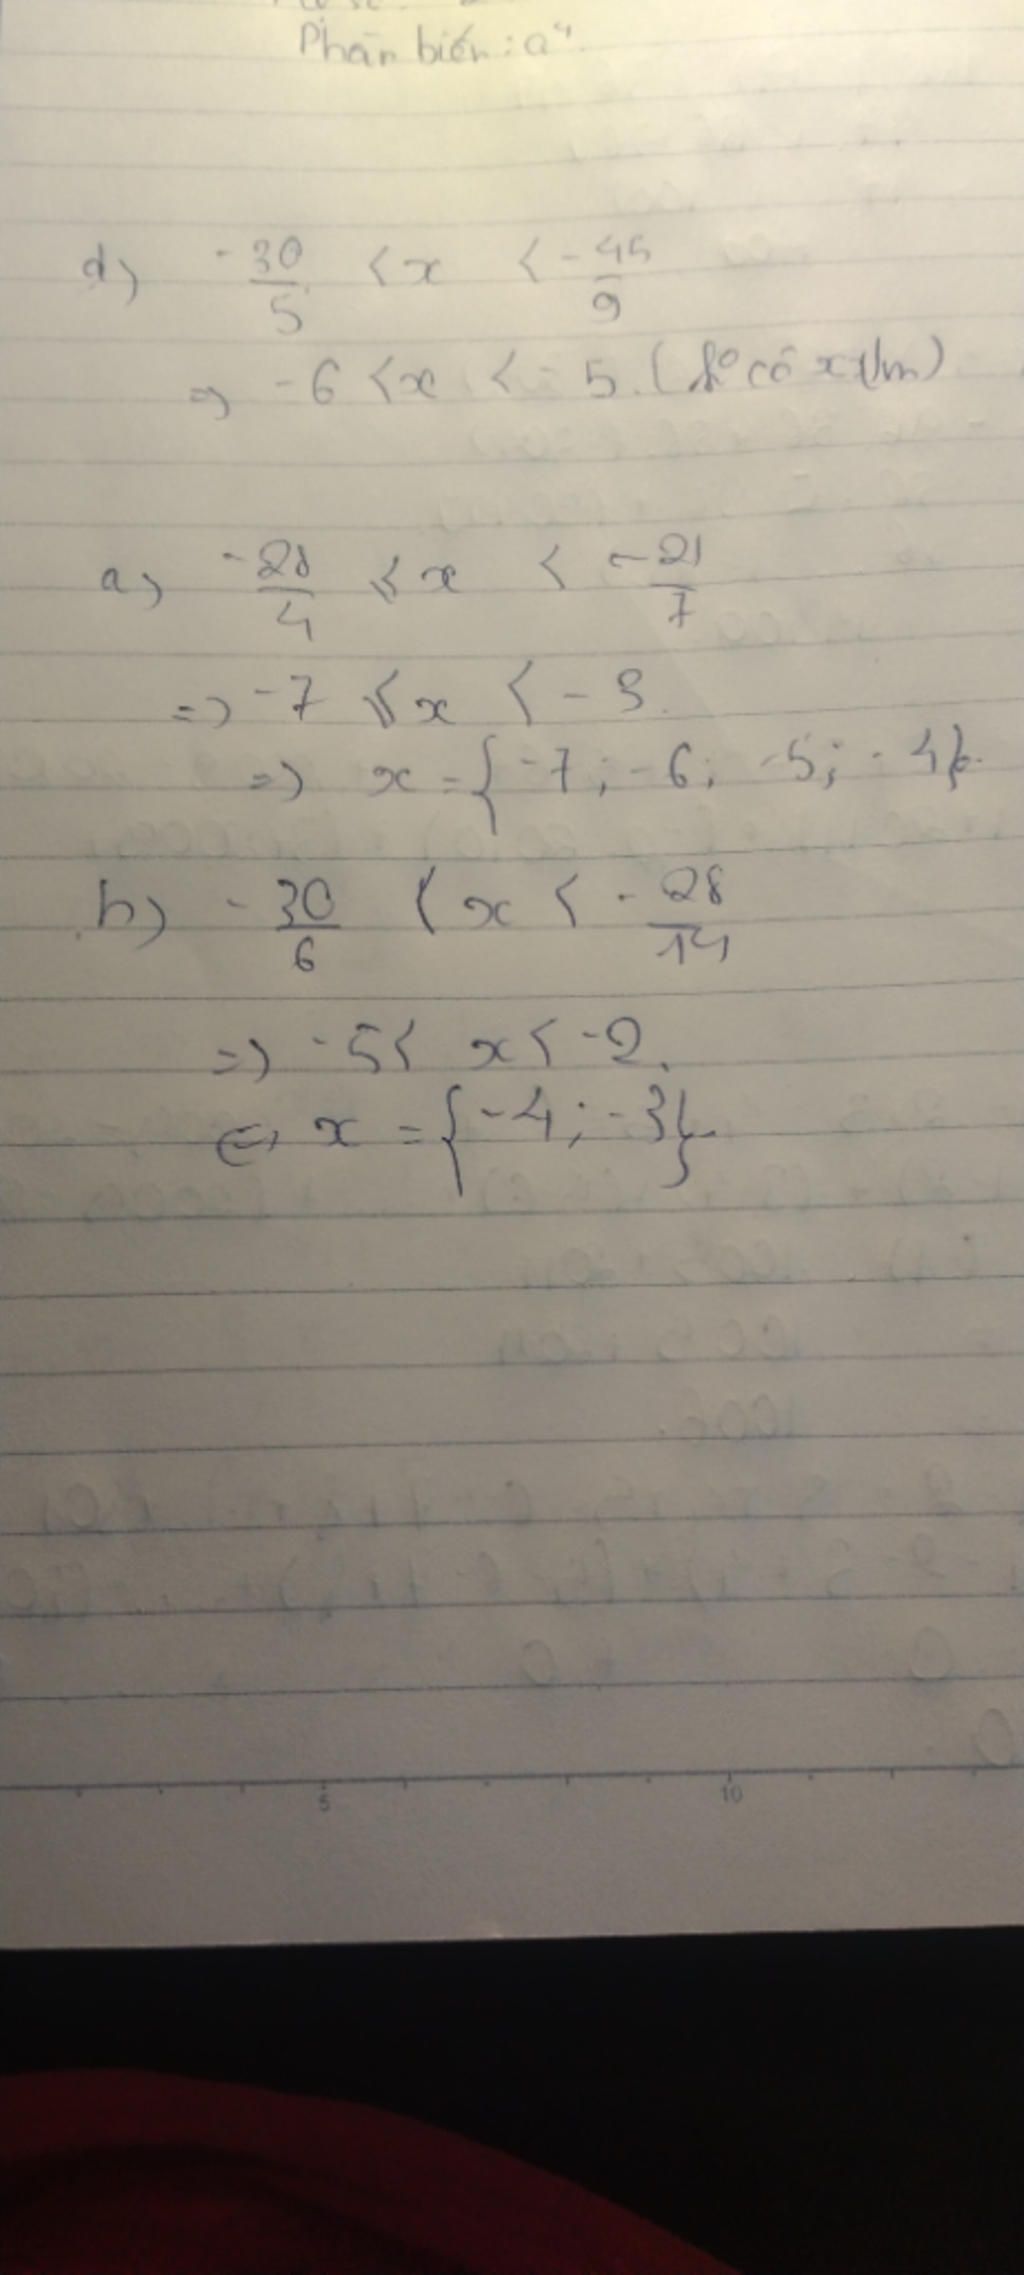 Phần biến: a⁴.
d) -30/5 < x < -45/9
=> -6 < x < -5. (ko có x t/m)
a) -28/4 ≤ x < -21/7
=> -7 ≤ x < -3.
=> x = {-7; -6; -5; -4}.
b) -30/6 < x < -28/14
=> -5 < x < -2.
<=> x = {-4; -3}.
5 10